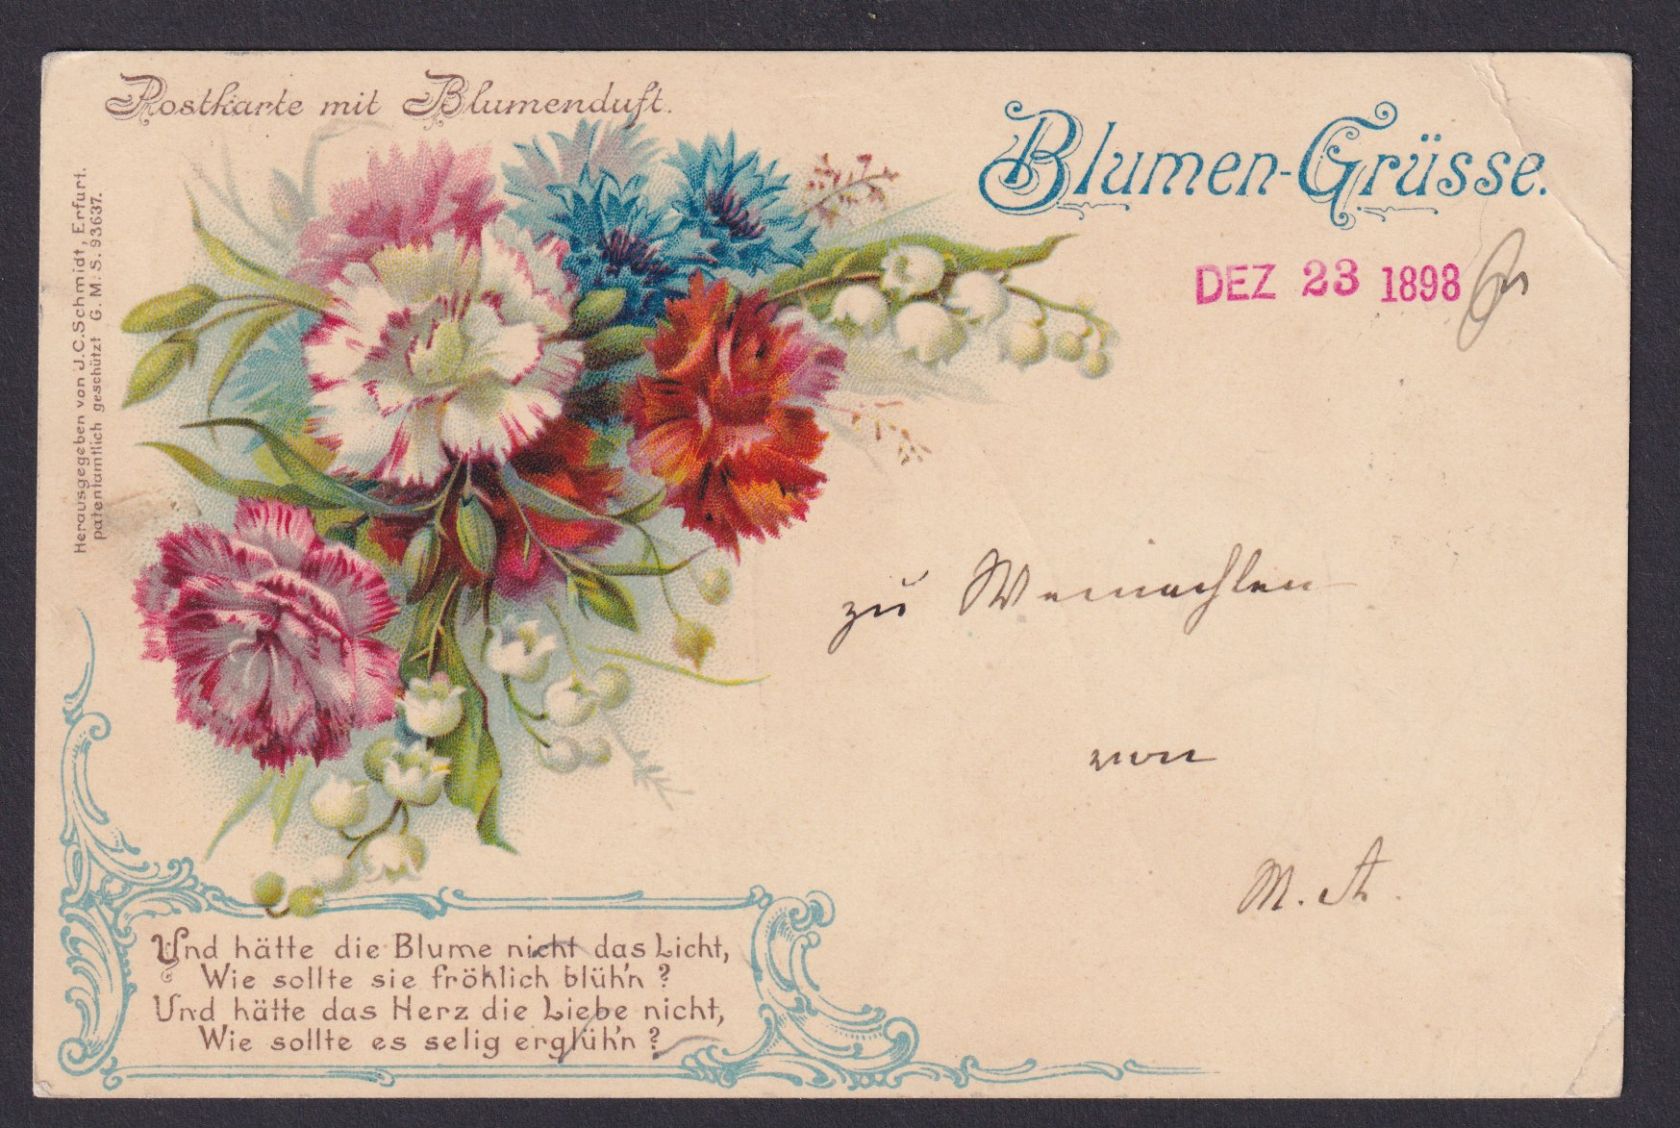 Postkarte mit Blumenduft.
Blumen-Grüsse.
DEZ 23 1898
Herausgegeben von J.C.Schmidt, Erfurt.
patentamtlich geschützt G. M. S. 93637.
zu Weinachten
von
M. A.
Und hätte die Blume nicht das Licht,
Wie sollte sie fröhlich blüh'n ?
Und hätte das Herz die Liebe nicht,
Wie sollte es selig erglüh'n ?